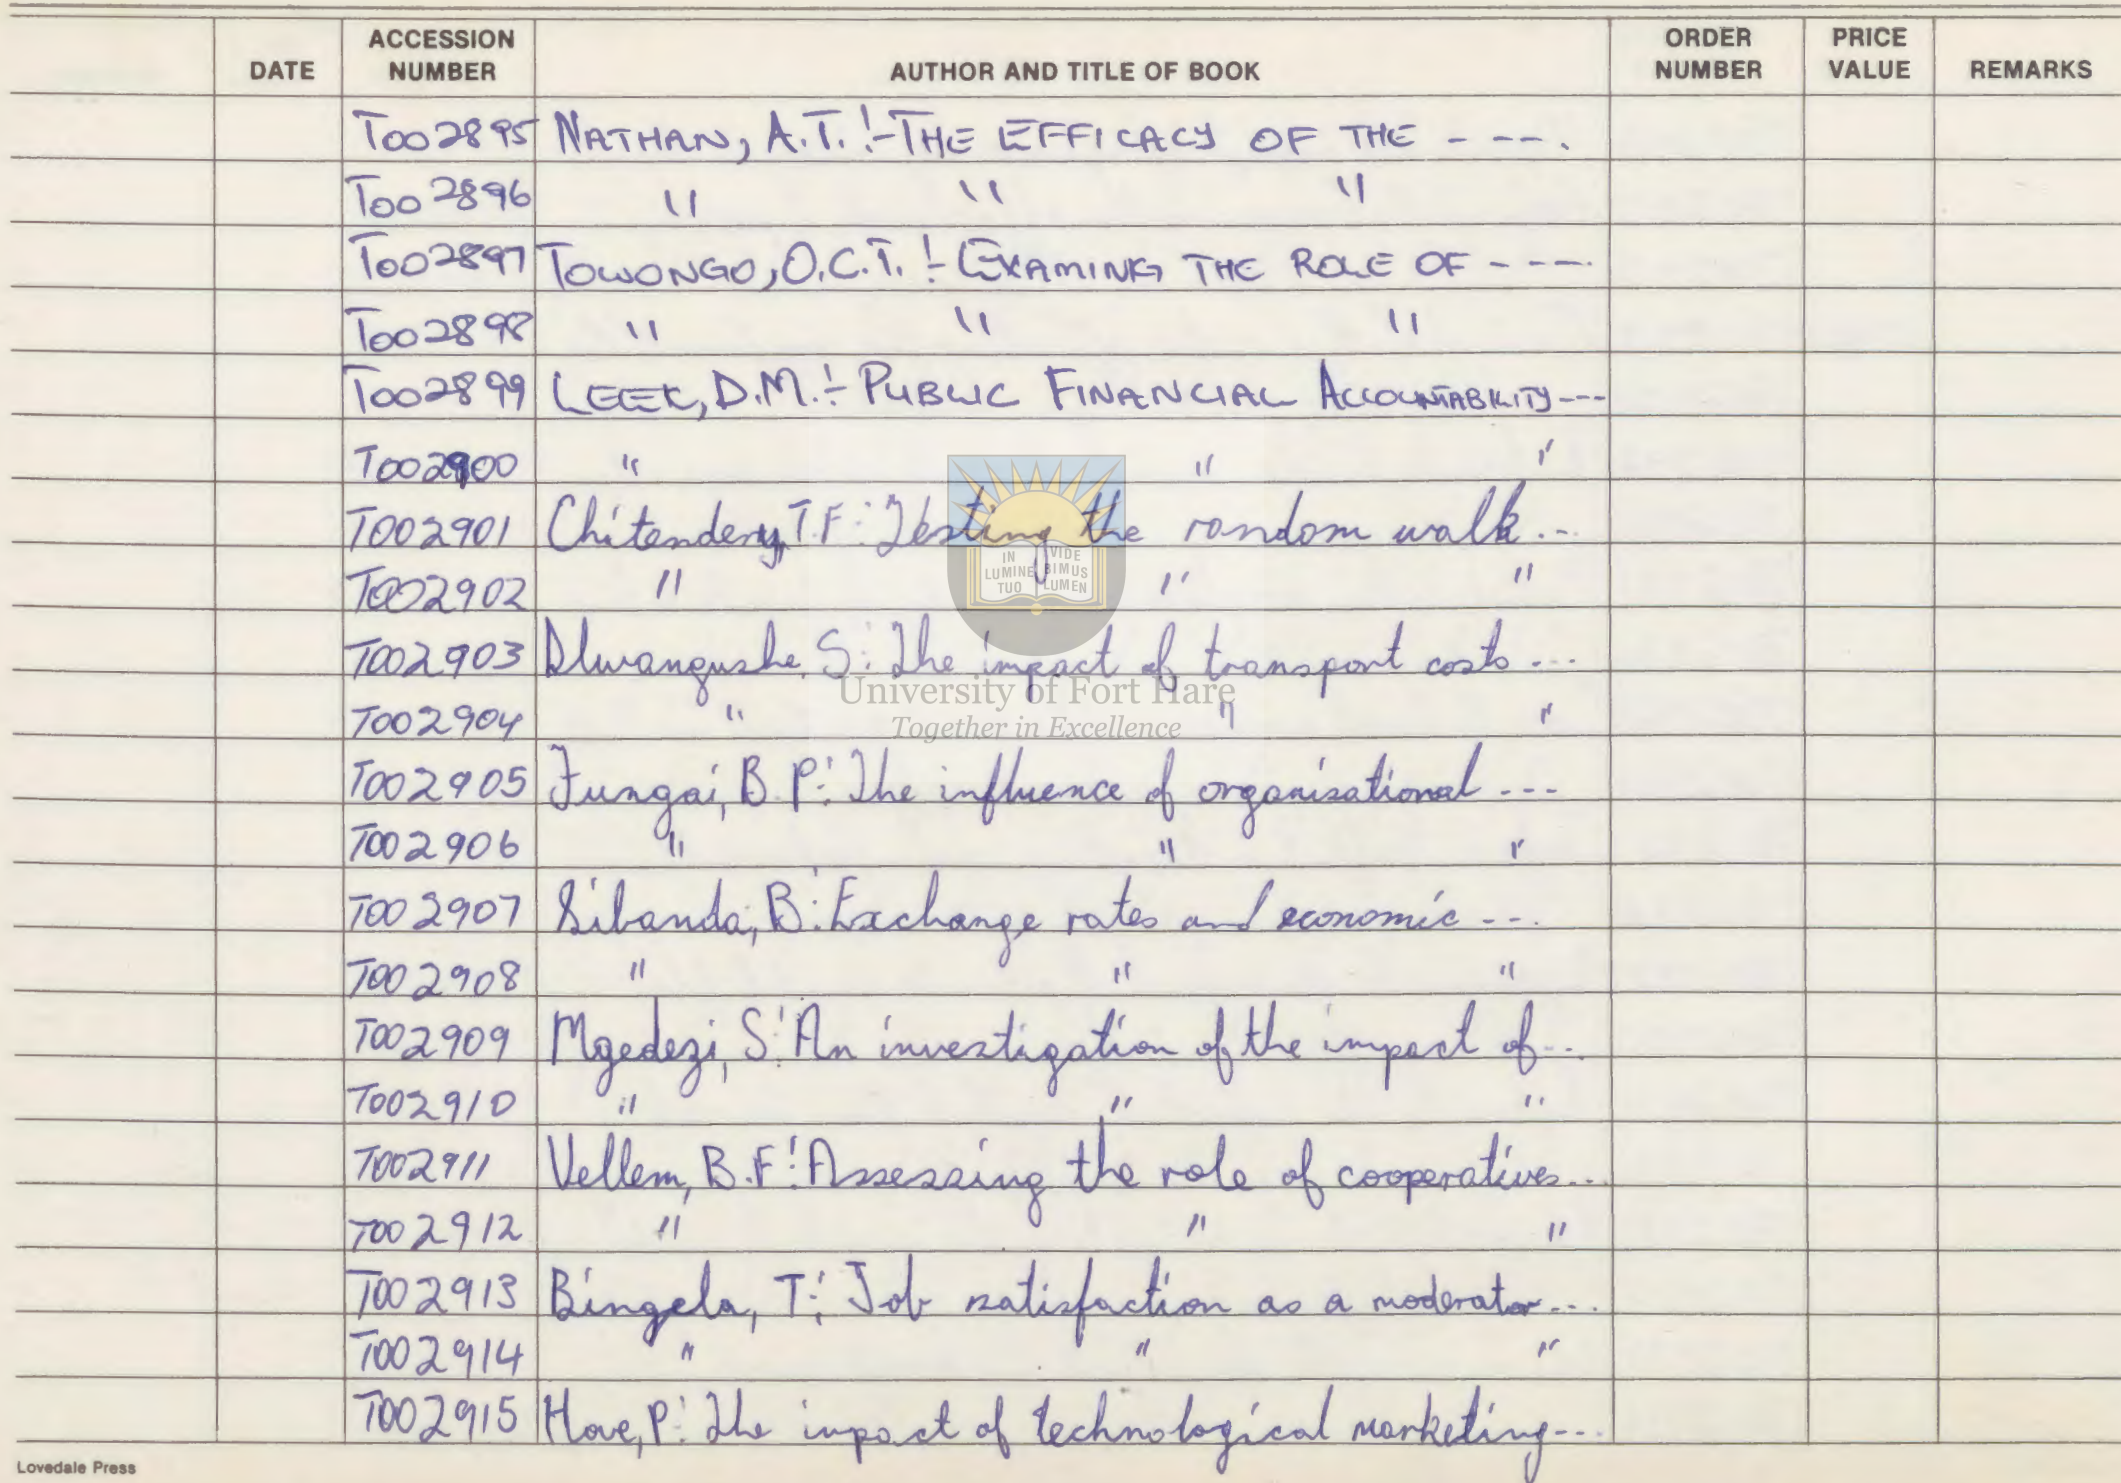 DATE ACCESSION NUMBER AUTHOR AND TITLE OF BOOK ORDER NUMBER PRICE VALUE REMARKS
T002895 NATHAN, A.T. :- THE EFFICACY OF THE - ---.
T002896 " " "
T002897 TOWONGO, O.C.T. :- EXAMING THE ROLE OF - ---.
T002898 " " "
T002899 LEEK, D.M. :- PUBLIC FINANCIAL ACCOUNTABILITY ---
T002900 " " "
T002901 Chitendery, T.F: Testing the random walk...
T002902 " " "
T002903 Dlwangushe, S: The impact of transport costs ...
T002904 " " "
T002905 Fungai, B.P: The influence of organisational ---
T002906 " " "
T002907 Sibanda, B: Exchange rates and economic ---
T002908 " " "
T002909 Mgedezi, S: An investigation of the impact of...
T002910 " " "
T002911 Vellem, B.F: Assessing the role of cooperatives...
T002912 " " "
T002913 Bingela, T: Job satisfaction as a moderator...
T002914 " " "
T002915 Hove, P: The impact of technological marketing---
IN LUMINE TUO VIDE BIMUS LUMEN
University of Fort Hare
Together in Excellence
Lovedale Press